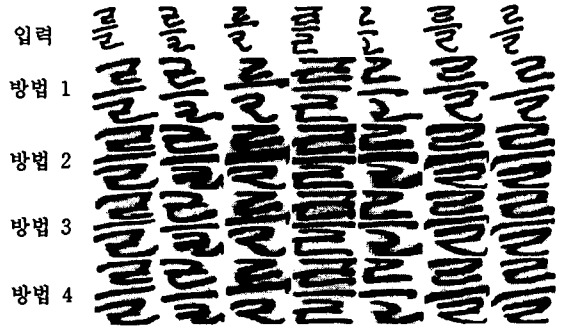 입력 를 를 를 를 를 를 를
방법 1 를 를 를 를 를 를 를
방법 2 를 를 를 를 를 를 를
방법 3 를 를 를 를 를 를 를
방법 4 를 를 를 를 를 를 를